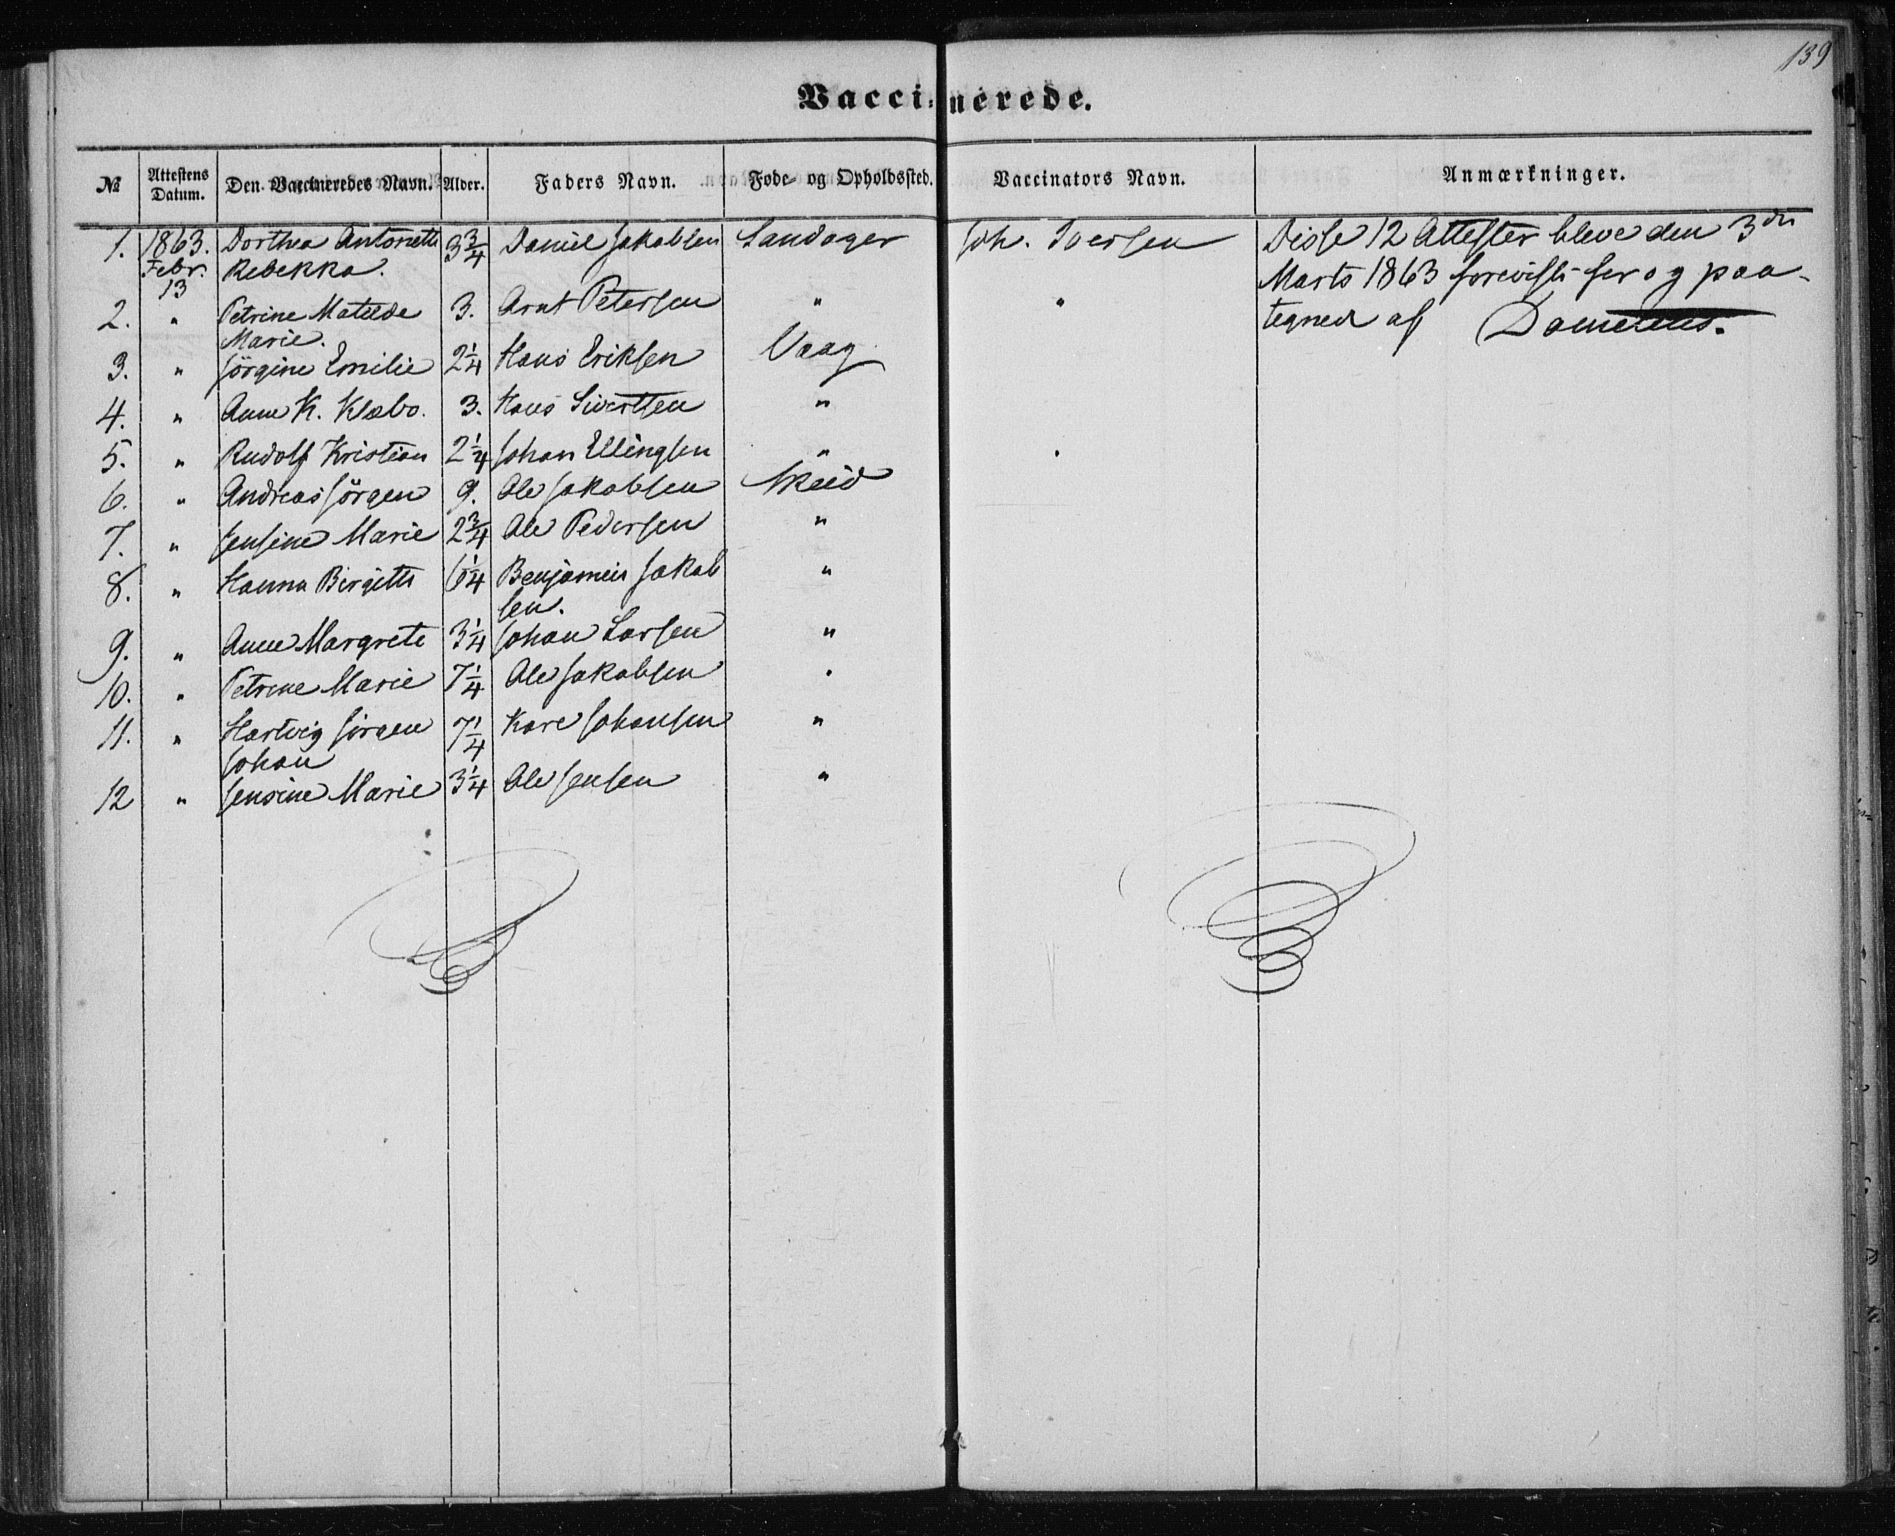 139
Vaccinerede.
№ Attestens Datum. Den Vaccineredes Navn. Alder. Faders Navn. Føde- og Opholdssted. Vaccinators Navn. Anmærkninger.
1. 1863. Dorthea Antonette 3 3/4 Daniel Jakobsen Sandager Joh. Iversen Disse 12 Attester bleve den 3die
Febr. Rebekka. Marts 1863 foreviste her og paa-
13
2. " Petrine Matilde 3. Arnt Petersen " " tegned af
Marie.
3. " Jörgine Emilie 2 1/4 Hans Eriksen Vaag
4. " Anne K. Klæbo. 3. Hans Sivertsen "
5. " Rudolf Kristian 2 1/4 Johan Ellingsen " "
6. " Andreas Jörgen 9. Ole Jakobsen Skeid
7. " Jensine Marie 2 3/4 Ole Pedersen "
8. " Hanna Birgitte 6 1/4 Benjamin Jakob "
sen.
9. " Anne Margrete 3 1/4 Johan Larsen "
10. " Petrine Marie 7 1/4 Ole Jakobsen "
11. " Hartvig Jörgen 7 1/4 Kare Johansen "
Johan
12 " Jensine Marie 3 1/4 Ole Jensen "